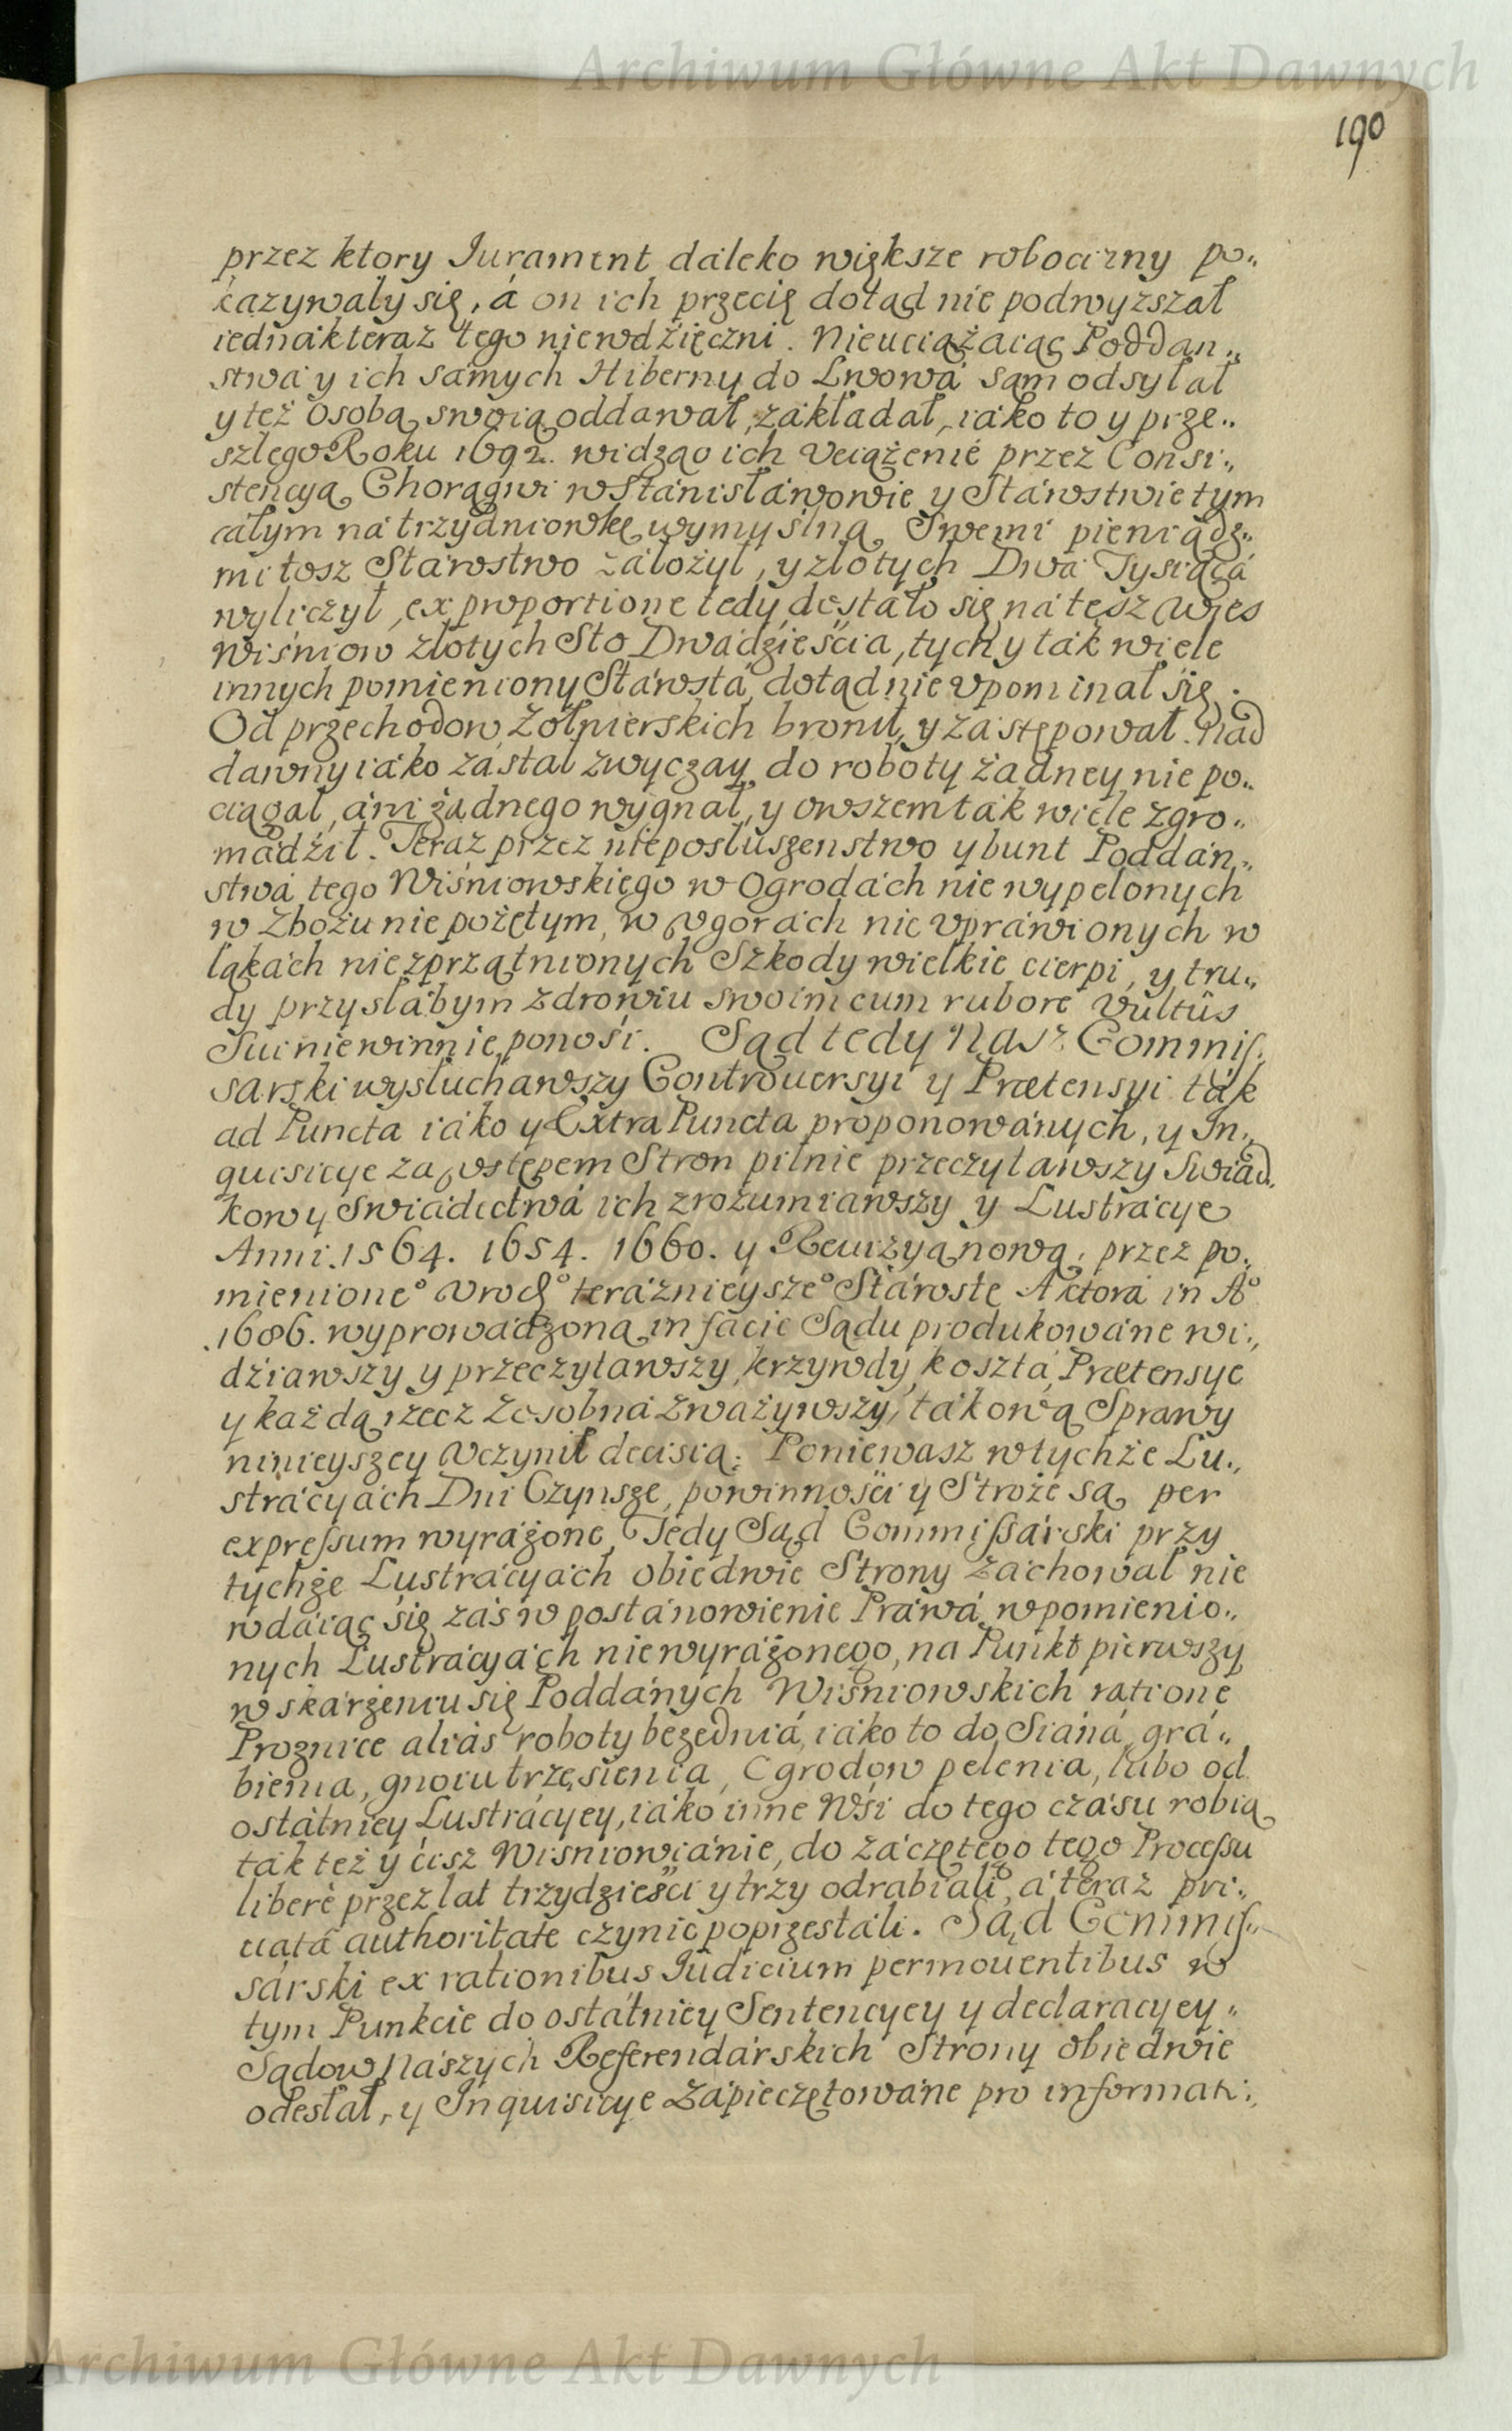 Archiwum Główne Akt Dawnych
190
przez ktory Jurament daleko większe robocizny po„
kazywały się, á on ich przecię dotąd nie podwyzszał
iednák teraz tego niewdźięczni. Nieuciążaiąc Poddan„
stwá y ich sámych Hiberny do Lwowá sam odsyłał
y też osobą swoią oddawał, zákładał, iáko to y prze„
szłego Roku 1692. widząc ich Vciążenié przez Consi„
stencyą Chorągwi w Stánisłáwowie y Stárostwie tym
całym ná trzydniowkę wymyślną Swemi pieniądz„
mi tosz Stárostwo záłożył, y złotych Dwá Tysiącá
wyliczył, ex proportione tedy dostáło się ná tęsz Wies
Wiśniow złotych Sto Dwádzieścia, tych y ták wiele
innych pomieniony Stárostá dotąd nie vpominał się.
Od przechodow Żołnierskich bronił, y zástępował. Nád
dawny iáko zástał zwyczay do roboty żádney nie po„
ciągał, áni żádnego wygnał, y owszem ták wiele zgro„
mádźił. Teraz przez nieposłuszenstwo y bunt Poddán„
stwá tego Wiśniowskiego w Ogrodách nie wypełonych
w Zbożu nie pożętym, w vgorách nie vpráwionych w
łąkách nie zprzątnionych Szkody wielkie cierpi, y tru„
dy przy słábym zdrowiu swoim cum rubore vultûs
Sui niewinnie ponośi. Sąd tedy Nasz Commis„
sarski wysłuchawszy Controuersyi y Prætensyi ták
ad Puncta iáko y Extra Puncta proponowánych, y In„
quisicye za wstępem Stron pilnie przeczytawszy Swiad„
kow y Swiádectwá ich zrozumiawszy y Lustrácye
Anni 1564. 1654. 1660. y Rewizyą nową, przez po„
mienione° Vrodz° teráznieysze° Stároste Aktorá in A°
1686. wyprowádzoną in facie Sądu produkowáne wi„
dźiawszy y przeczytawszy, krzywdy, kosztá, Prætensye
y każdą rzecz zosobná zważywszy, tákową Spráwy
ninieyszey Vczynił decisią: Poniewasz w tychże Lu„
strácyách Dni Czynsze, powinnośći y Stroże są per
expressum wyráżone, Tedy Sąd Commissárski przy
tychże Lustrácyách obiedwie Strony záchował nie
wdáiąc się záś w postánowienie Práwá w pomienio„
nych Lustrácyách nie wyráżonego, na Punkt pierwszy
w skárżeniu się Poddánych Wiśniowskich ratione
Proznice aliás roboty bezedniá, iáko to do Siáná grá„
bienia, gnoiu trzęsienia, Ogrodow pelenia, lubo od
ostátniey Lustrácyey, iáko inne Wśi do tego czásu robią
ták też y cisz Wisniowiánie, do záczętego tego Processu
liberè przez lat trzydzieśći y trzy odrabiali, á teraz pri„
uatá authoritate czynic poprzestáli. Sąd Commis„
sárski ex rationibus Iudicium permouentibus w
tym Punkcie do ostátniey Sentencyey y declaracyey„
Sądow Nászych Referendárskich Strony obiedwie
odesłał, y Inquisicye zápieczętowáne pro informati„
Archiwum Główne Akt Dawnych